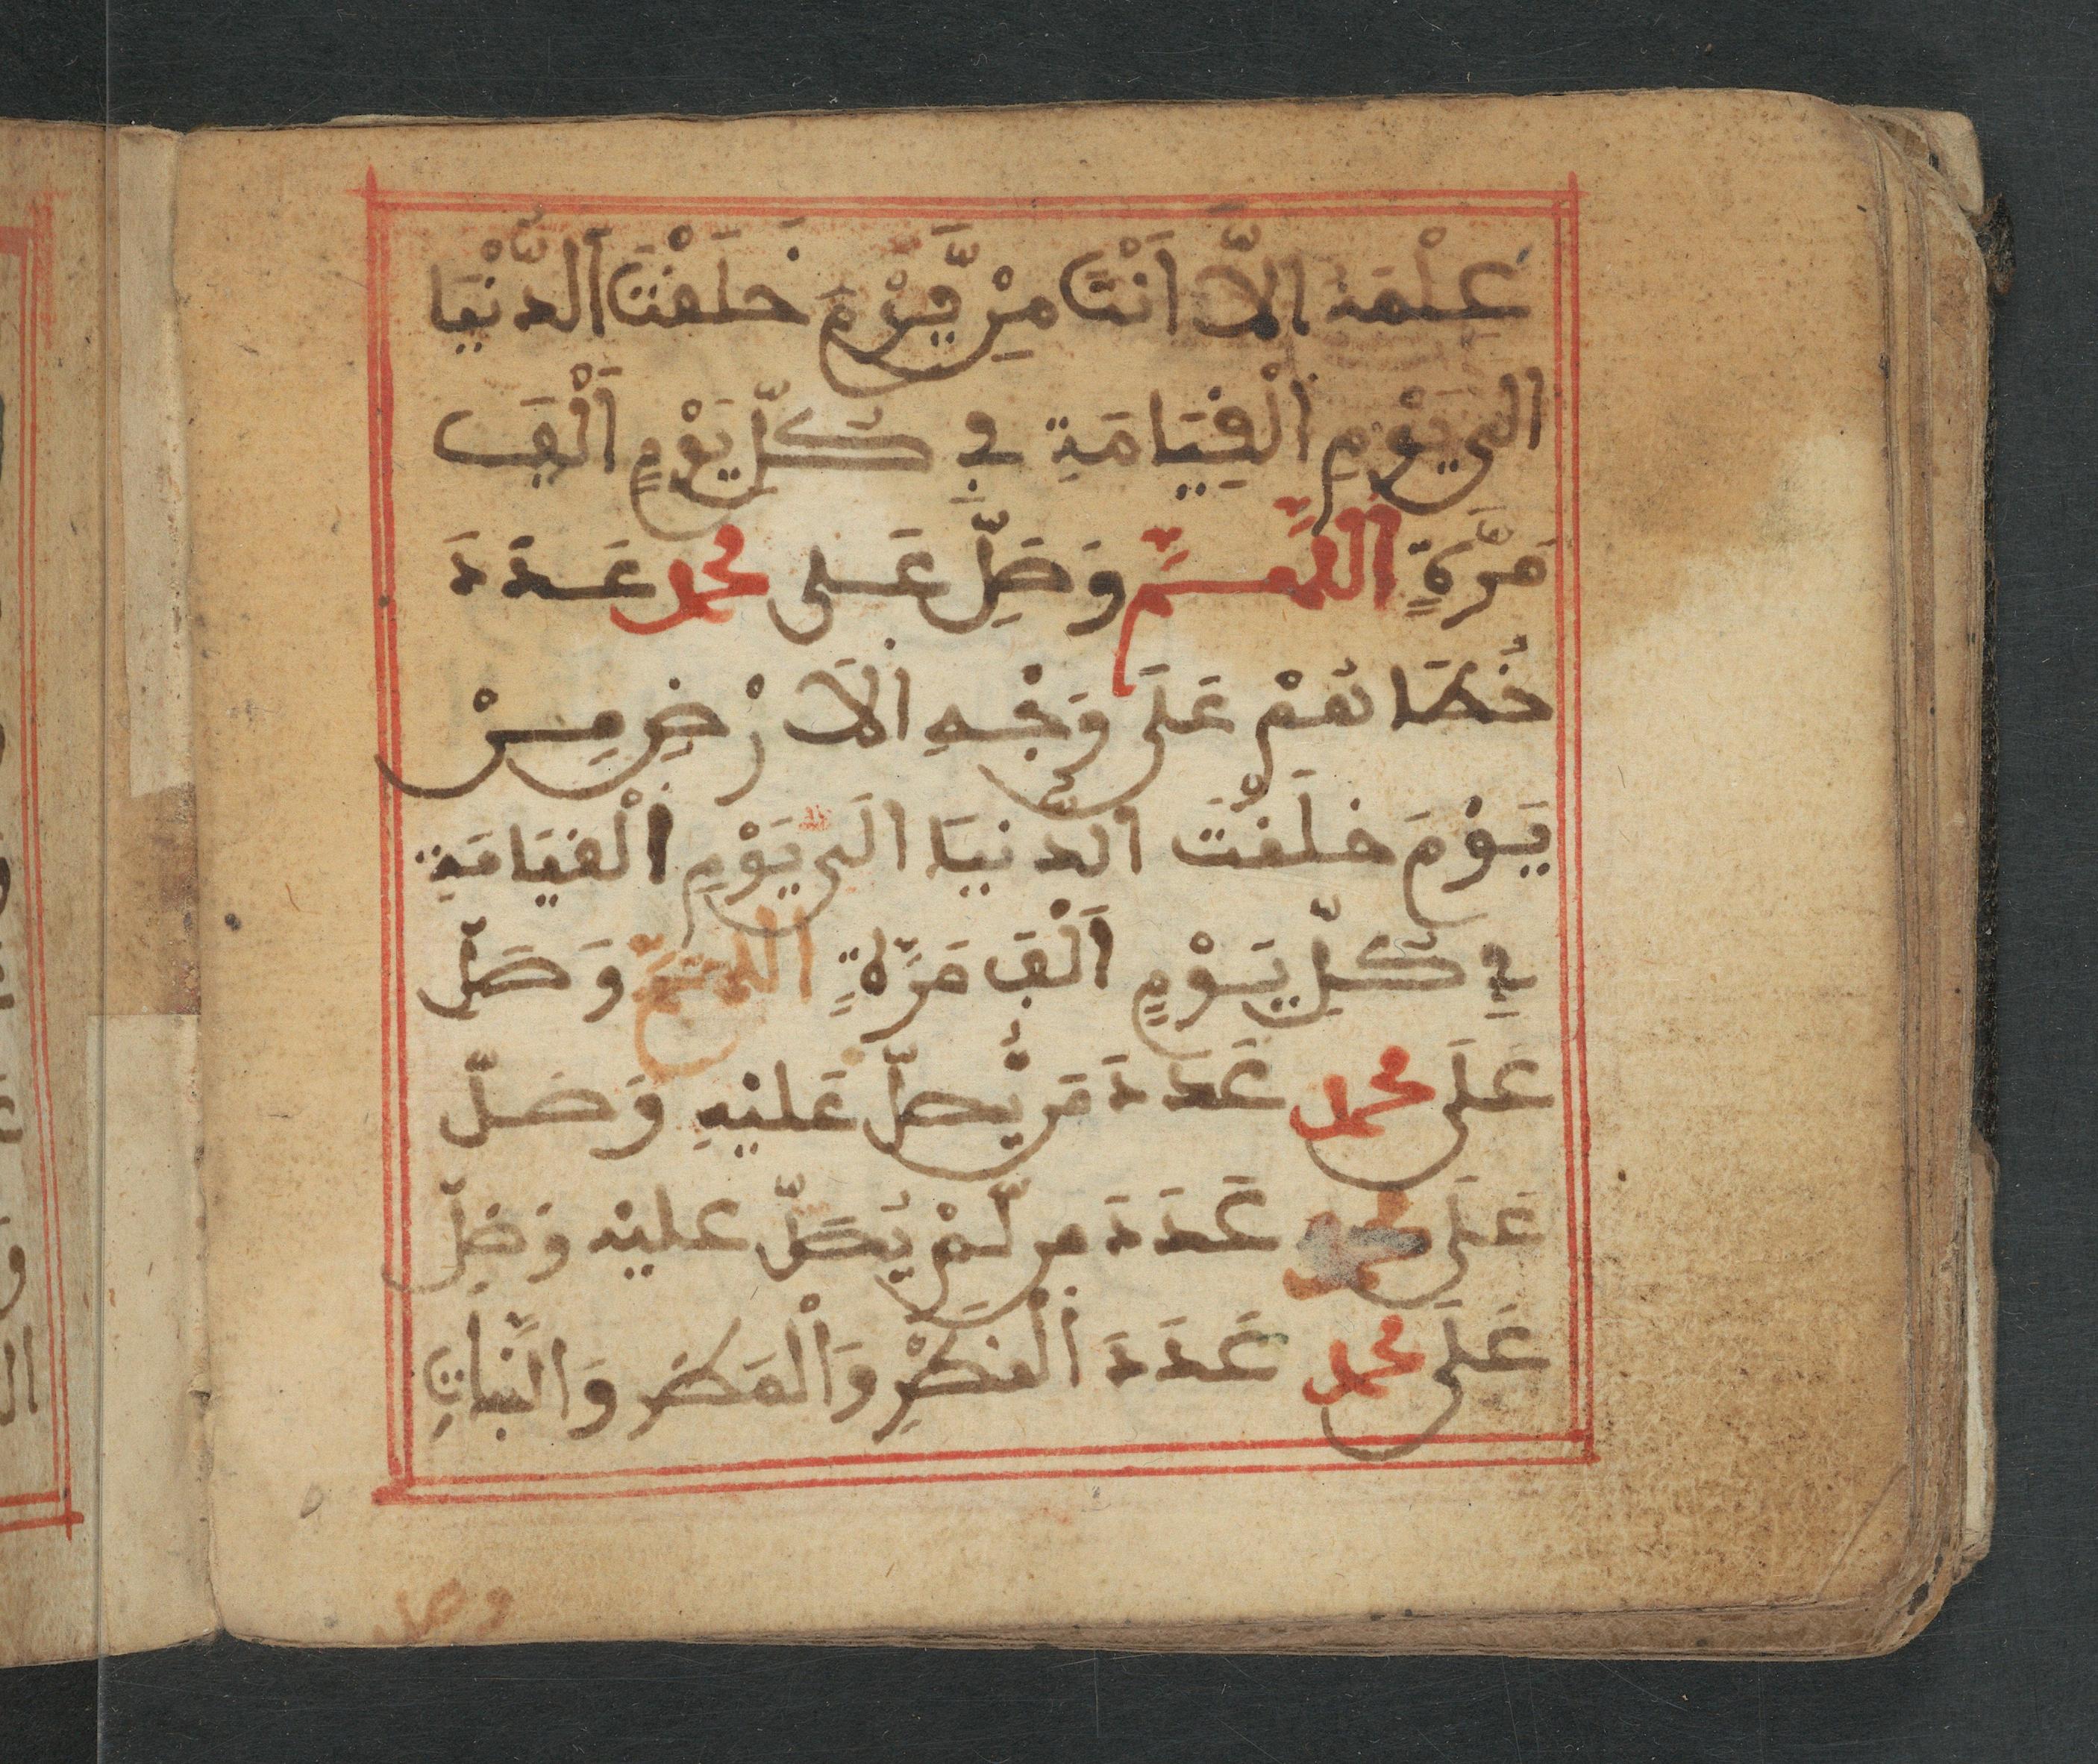 عِلْمَهُ الاَّ اَنْتَ مِنْ يَّوْمَ خَلَقْتَ اَلدُّنْيَا
الى يَوْمِ الْقِيَامَةِ فِى كُلِّ يَوْمٍ اَلْفَ
مَرَّةٍ اَللَّهُمَّ وَصَلِّ عَلى محمد عَدَدَ
خُطَاهُمْ عَلَى وَجْهِ الاَرْضِ مِنْ
يَوْمَ خَلَقْتَ الدُّنيَا الَى يَوْمِ الْقِيَامَةِ
فِى كُلِّ يَوْمٍ اَلْفَ مَرَّةٍ اللَّهُمَّ وَصَلِّ
عَلَى محمد عَدَدَ مَن يُّصَلِّ عَلَيْهِ وَصَلِّ
عَلَى محمد عَدَدَ من لَّمْ يُصَلِّ عليْه وَصَلِّ
عَلَى محمد عَدَدَ الْقَطْرِ وَالْمَطَرِ وَالنَّبَاتِ
وصل